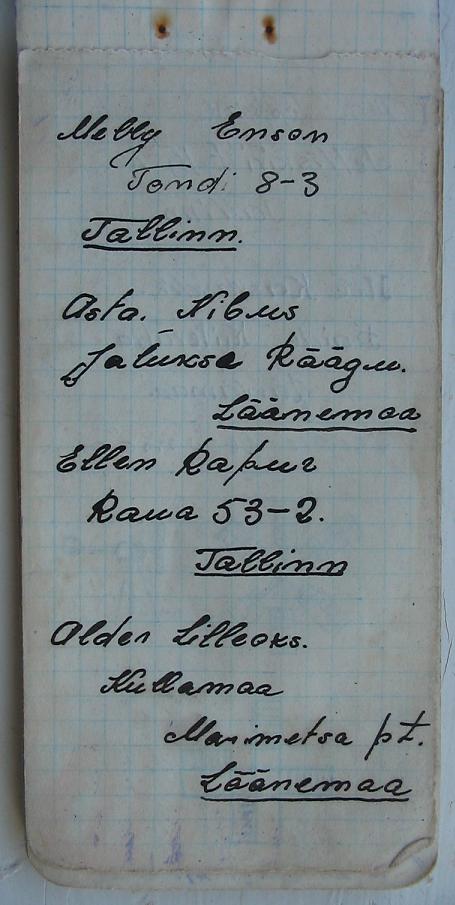 Melly Enson
Tondi 8-3
Tallinn.
Asta. Nibus
Jalukse Räägu.
Läänemaa
Ellen Rapur
Raua 53-2.
Tallinn
Alder Lilleoks.
Kullamaa
Marimetsa pt.
Läänemaa